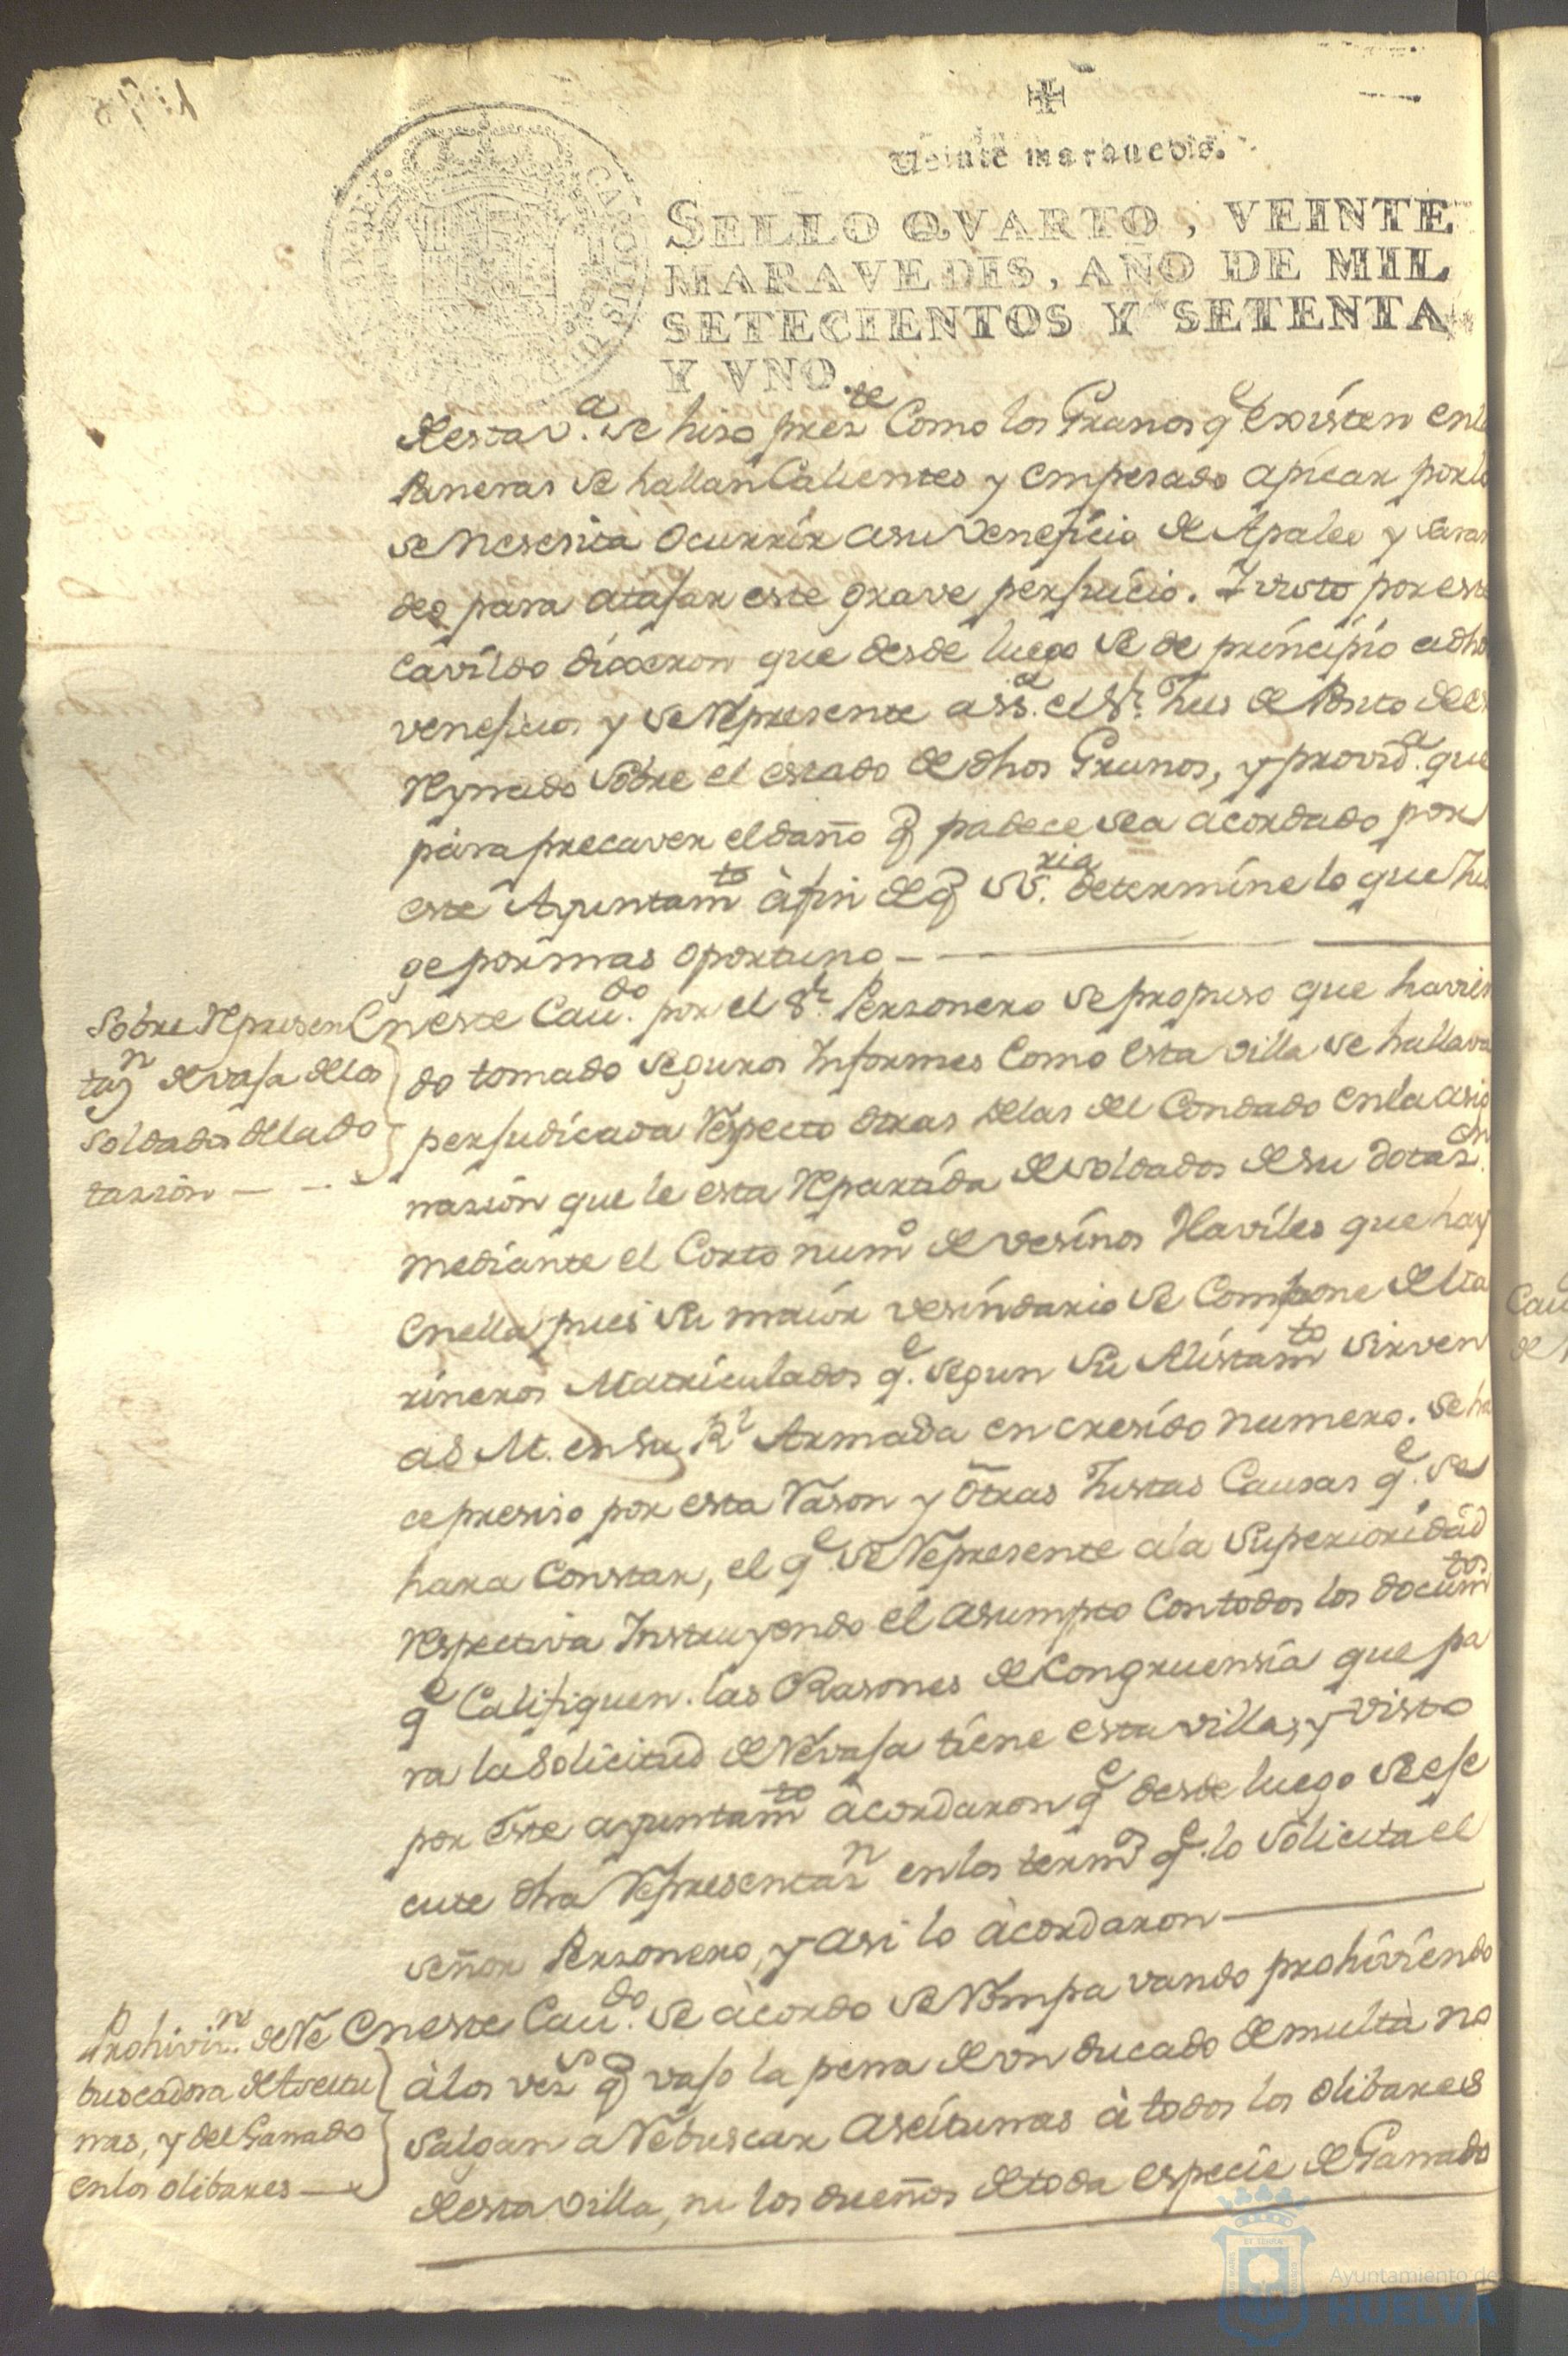 Veinte maravedis.
SELLO QVARTO, VEINTE
MARAVEDIS, AÑO DE MIL
SETECIENTOS Y SETENTA
Y VNO.
de esta v.ª se hiso prez.te Como los Granos q.e existen enla
Paneras se hallan Calientes y empesado apicar por lo
se nesesita Ocurrir asu veneficio de Apaleo y saran
deo para atajar este grave perjuicio. I visto por este
Cavildo dixeron que desde luego se de principio adho
veneficio y se represente a s.sª. el S.r Jues de Posito de es
Reynado sobre el estado de dhos Granos, y provid.ª que
para precaver el daño q̃ padece sea acordado por
este Ayuntam.to à fin de q̃ S.S.ria determine lo que Jus
ge por mas oportuno
Sobre represen
taz.n de vaja de los
Soldados de la do
tasion
En este Cau.do por el S.r Personero se propuso que havien
do tomado seguros Informes Como esta villa se hallava
perjudicada respecto otras de las del Condado en la asig
nasion que le esta repartida de soldados de su dotaz.on
mediante el Corto num.o de vesinos Haviles que hay
en ella pues su maior vesindario se Compone de Ma
rineros Matriculados q.e segun su Alistam.to sirven
a S. M. en su R.l Armada en cresido numero. se ha
ce presiso por esta rason y otras Justas Causas q.e se
hara Constar, el q.e se represente ala Superioridad
respectiva Instruyendo el asumpto Con todos los docum.tos
q.e Califiquen las Rasones de Congruensia que pa
ra la Solicitud de revaja tiene esta villa, y visto
por este ayuntam.to àcordaron q.e desde luego se eje
cute dha representaz.n en los term.os q.e lo solicita el
señor Personero, y asi lo àcordaron
Prohiviz.n de re
buscadora de Aseitu
nas, y del Ganado
en los olibares
En este Cau.do se àcordo se rompa vando prohiviendo
à los vez.s q̃ vajo la pena de un ducado de multa no
salgan a rebuscar aseitunas à todos los olibares
de esta villa, ni los dueños de toda especie de Ganado
Ayuntamiento de
HUELVA